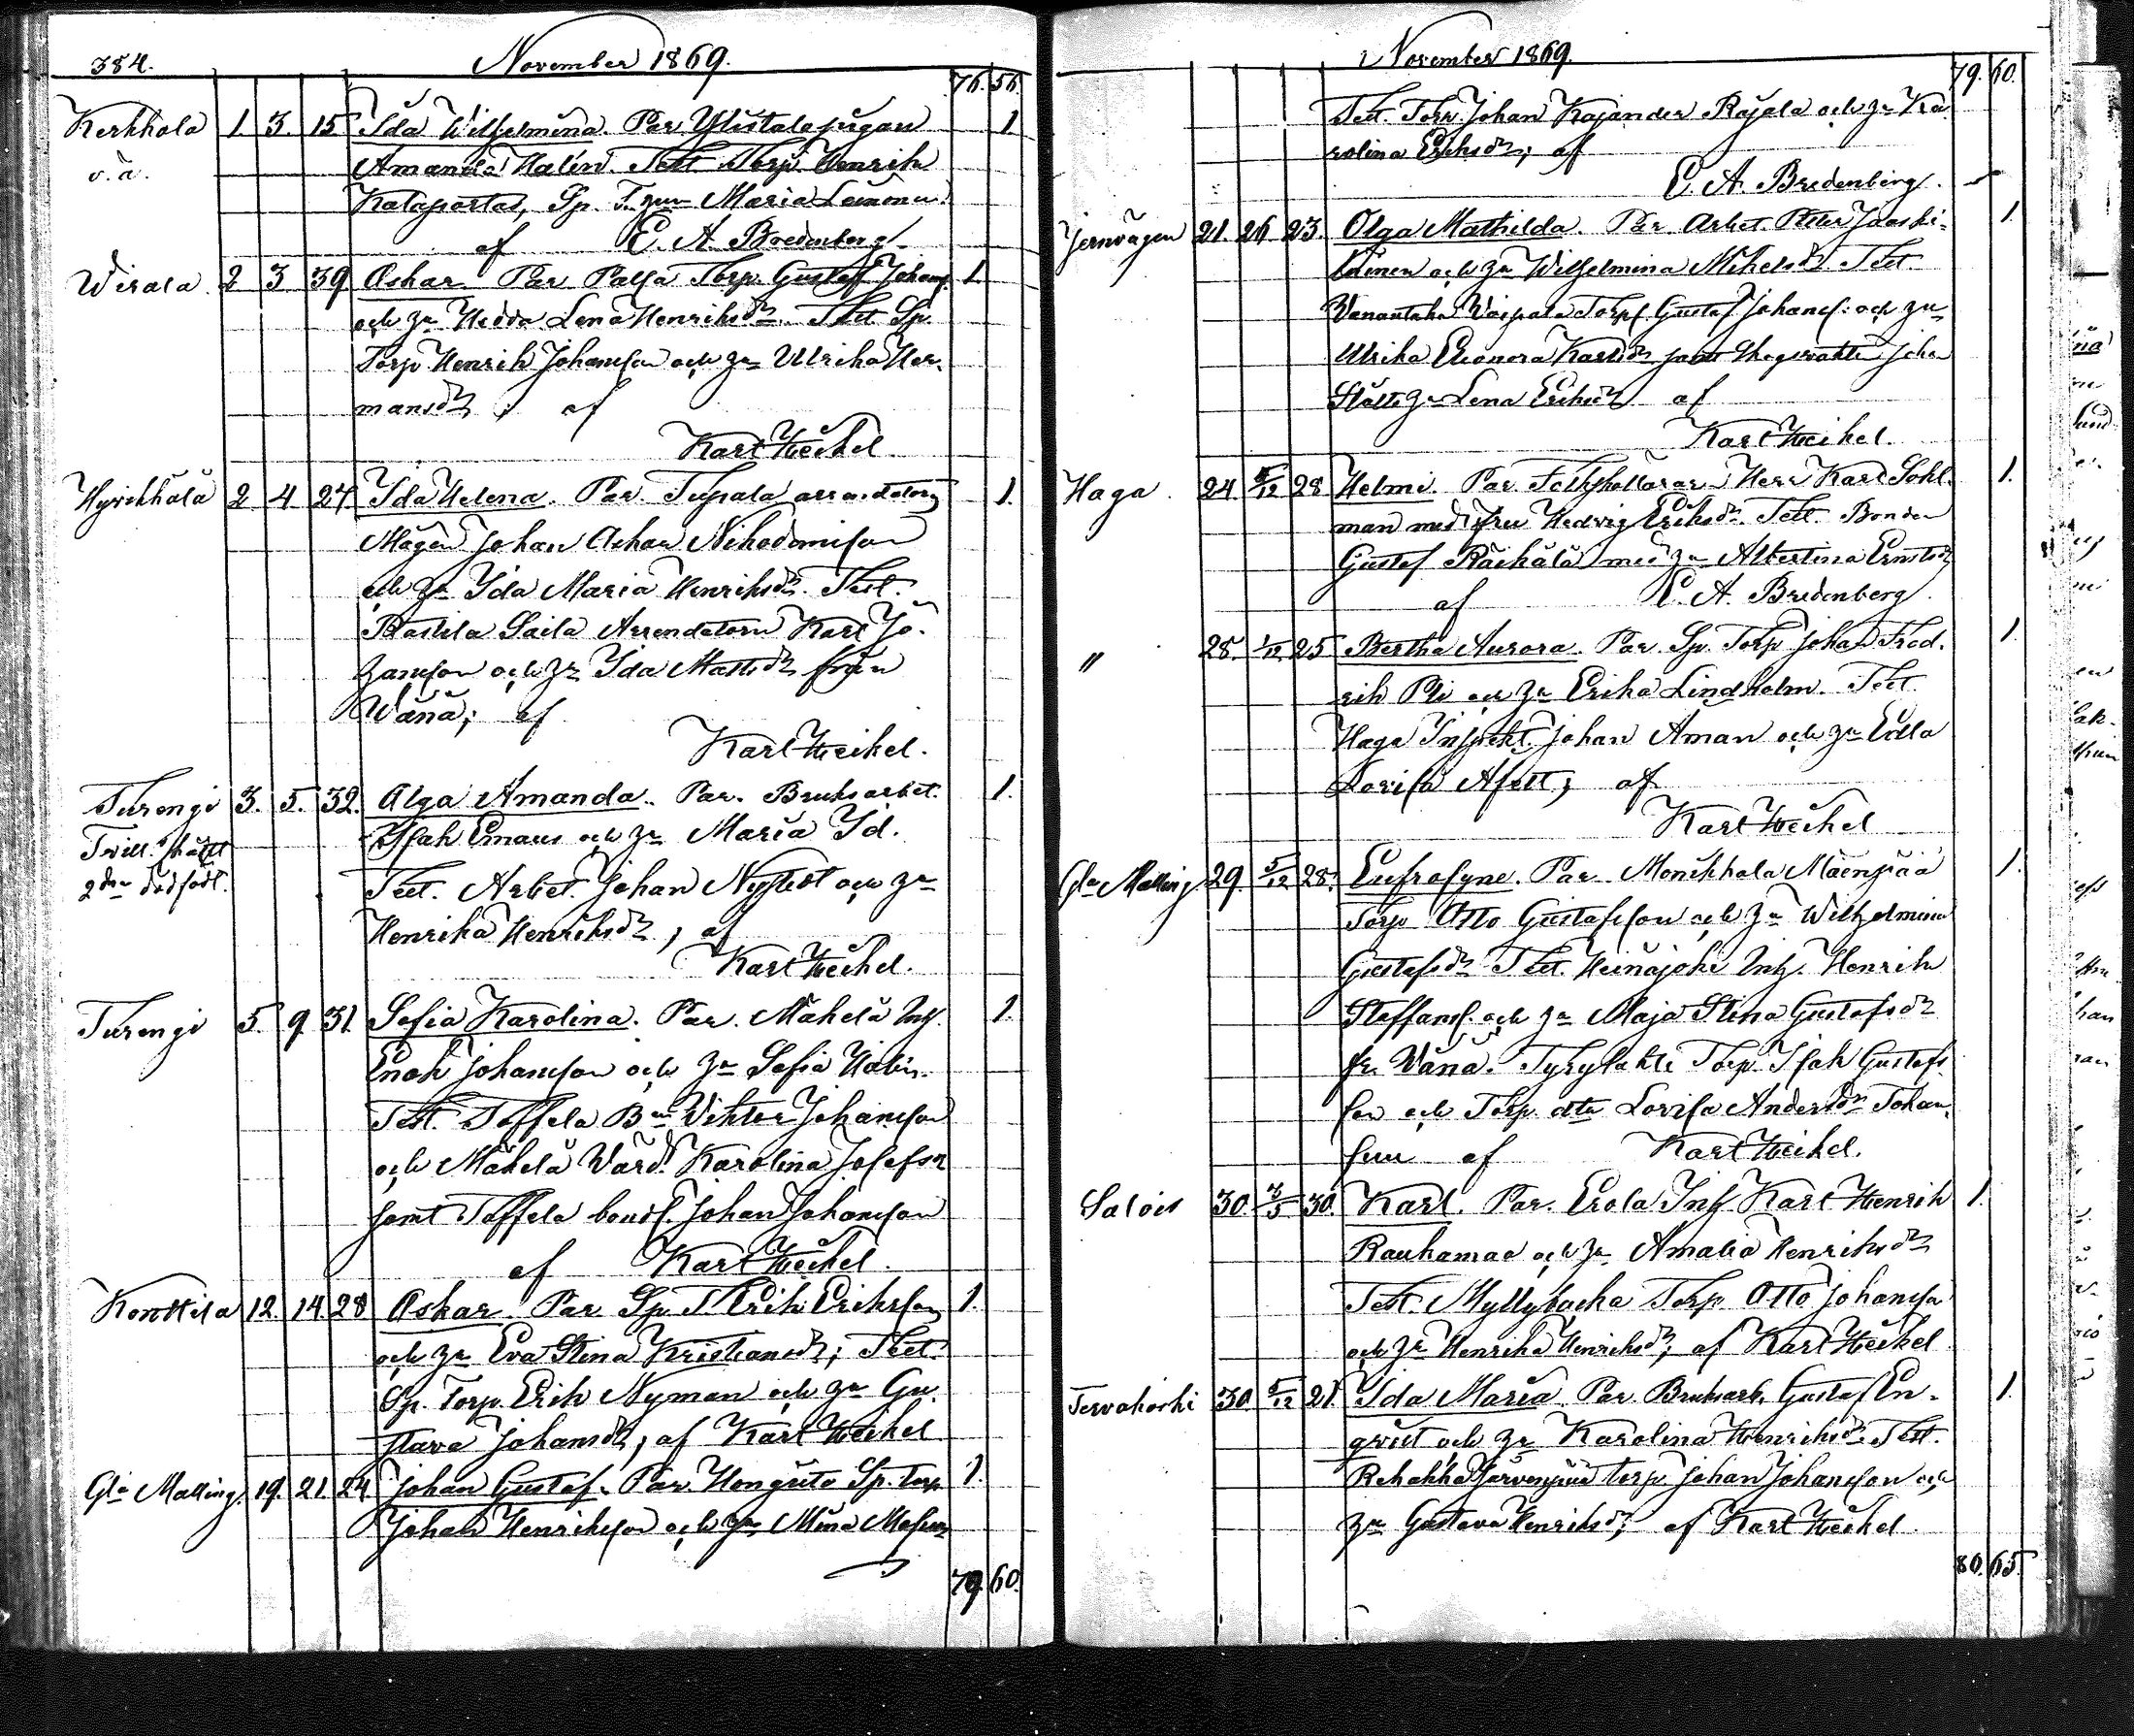 384. November 1869.
76. 56.
Kerkkola 1. 3. 15 Ida Wilhelmina. Par Ylistalopigan 1
o.ä. Amanda Malin. Test Torp. Henrik
Kataportas, Sp. T. Maria
af E. A. Bredenberg
Wirala 2 3 39 Oskar. Par Palja Torp. Gustaf Johans. 1.
och hu Hedda Lena Henriksdr. Test Sp.
Torp. Henrik Johansson och hu Ulrika Her-
mansdr, af
Karl Heikel
Hyrikkälä 2 4 27 Ida Helena. Par. Tupala arrendators 1.
Mågen Johan Oskar Nikodemisson
och hu Ida Maria Henriksdr. Test.
Rastila Saila Arrendatorn Karl Jo-
hansson och hu Ida Mattsdr från
Wånå; af
Karl Heikel.
Turengi 3. 5. 32. Olga Amanda. Par. Bruksarbet. 1.
Twill.
2dra dödfödt. Isak Emaus och hu Maria Id.
Test. Arbet. Johan Nystedt och hu
Henrika Henriksdr, af
Karl Heikel.
Turengi 5. 9 31. Sofia Karolina. Par. Mäkelä Inh. 1.
Enok Johansson och hu Sofia Malin.
Test. Toffela Bn Viktor Johansson
och Mäkelä Värd. Karolina Josefsdr
samt Toffela bonds. Johan Johansson
af Karl Heikel.
Konttila 12. 14. 28 Oskar. Par Sp. T. Erik Eriksson 1.
och hu Eva Stina Kristiansdr; Test.
Sp. Torp. Erik Nyman och hu Gu-
stava Johansdr; af Karl Heikel
Gla Malling. 19. 21. 24. Johan Gustaf. Par. Hongisto Sp. torp. 1.
Johan Henriksson och hu Mina
79. 60.
November 1869.
79. 60.
Test. Torp. Johan Kajander Rajala och hu Ka-
rolina Eriksdr; af
E. A. Bredenberg.
Jernvägen 21. 26 23. Olga Mathilda. Par. Arbet. Petter Jaaski- 1.
läinen och hu Wilhelmina Mikelsdr. Test.
Vanantaka Torp. Gustaf Johans. och hu
Ulrika Eleonora Karlsdr samt Skogvakten Johan
Ståltz hu Lena Eriksdr af
Karl Heikel.
Haga. 24 5/12 28 Helmi. Par. Herr Karl Sohl- 1.
man med fru Hedvig Eriksdr. Test. Bonden
Gustaf Räikälä med hu Albertina Ernstdr
af E. A. Bredenberg.
" 28. 1/12 25 Bertha Aurora. Par. Sp. Torp Johan Fred- 1.
rik Pli och hu Erika Lindholm. Test.
Haga Inspekt. Johan Åman och hu Edla
Lovisa Afelt; af
Karl Heikel
Gla Malling 29. 5/12 28. Eufrosyne. Par. Monikkala Mäenpää 1.
Torp Otto Gustafsson och hu Wilhelmina
Gustafsdr Test. Heinäjoki Inh. Henrik
Staffans. och hu Maja Stina Gustafsdr
fr. Wånå. Tyrylahti Torp. Isak Gustafs-
son och Torp. dtr Lovisa Andersdr
af Karl Heikel.
Salois 30 3/5 30. Karl. Par. Erola Inh Karl Henrik 1.
Rauhamaa och hu Amalia Henriksdr
Test. Myllybacka Torp. Otto Johansson
och hu Henrika Henriksdr; af Karl Heikel
Tervakoski 30. 5/12 21 Ida Maria. Par Bruksarb. Gustaf En- 1.
qvist och hu Karolina Henriksdr. Test.
Rehakka Järvenpää torp. Johan Johansson och
hu Gustava Henriksdr; af Karl Heikel.
80. 65.